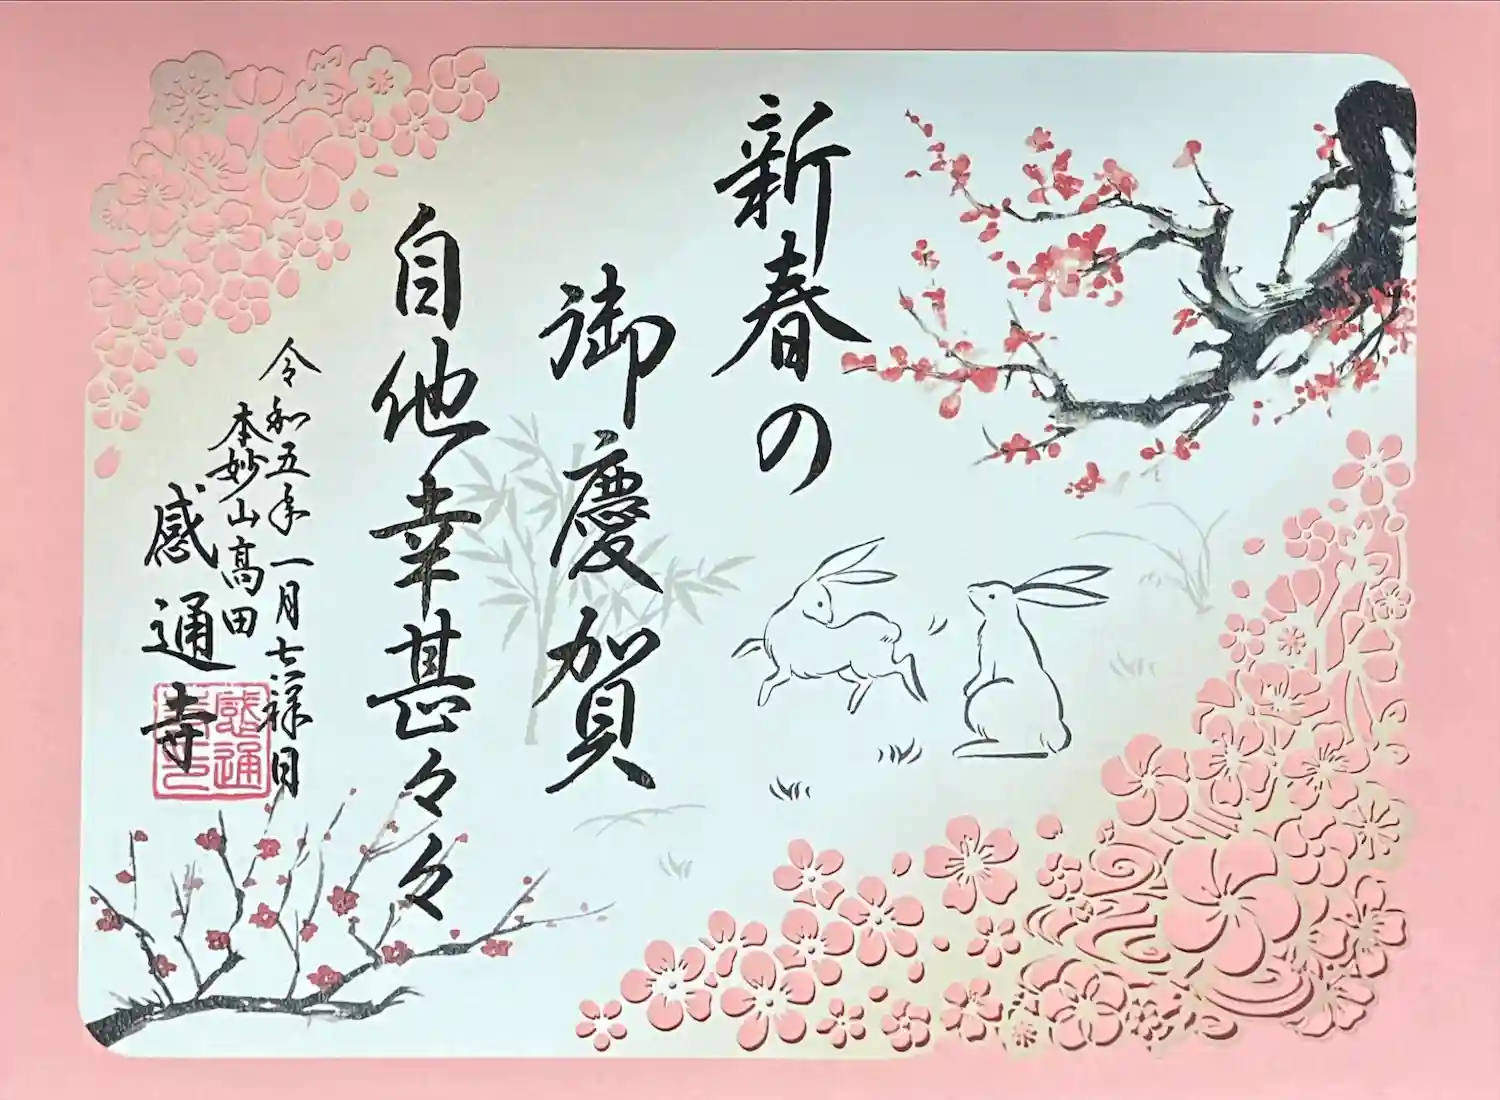 新春の
御慶賀
自他幸甚々々
令和五年一月七祥日
本妙山高田
感通寺
感通寺印